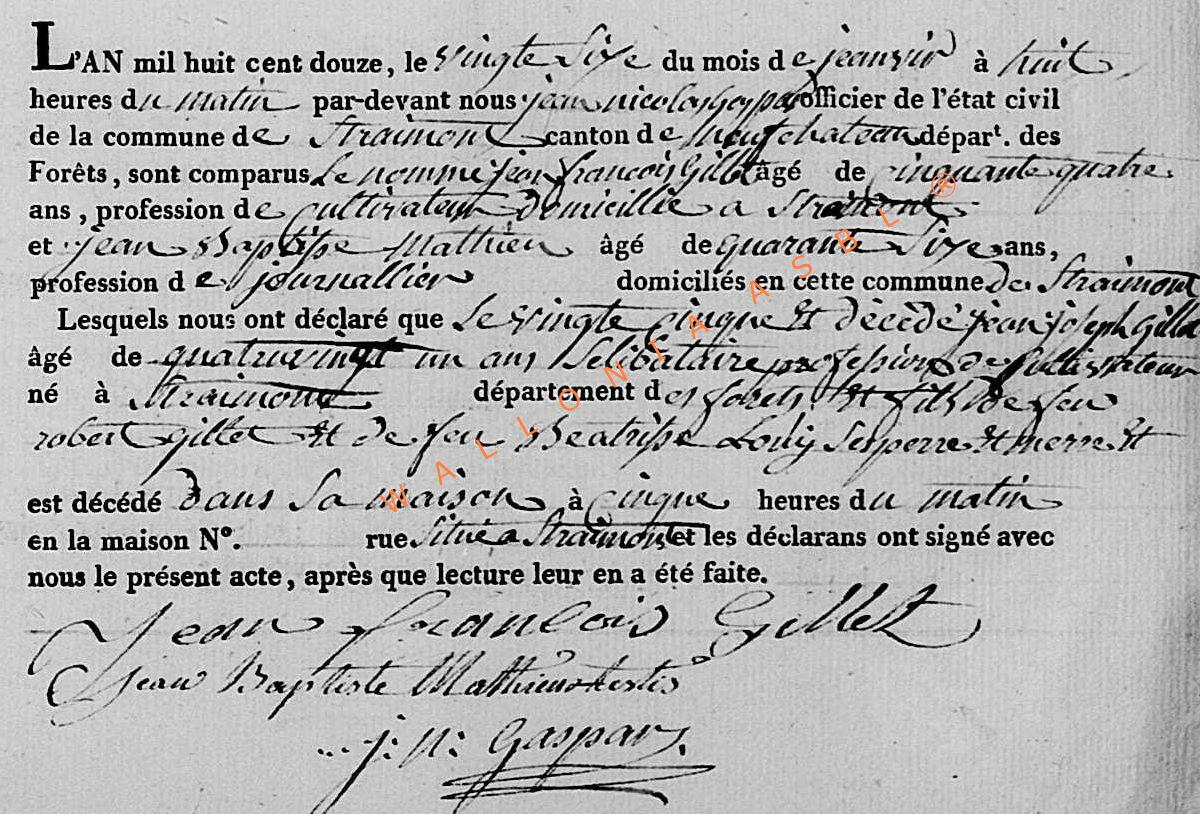 L'AN mil huit cent douze, le vingte Sixe du mois de jeanvir à huit
heures du matin par-devant nous jean nicolas gaspar officier de l'état civil
de la commune de Straimont canton de neufchateau départ. des
Forêts, sont comparus Le nomme jean francois Gillet âgé de cinquante quatre
ans, profession de cultivateur domicillie a Straimont
et jean Baptiste Mathieu âgé de quarante Sixe ans,
profession de journallier domiciliés en cette commune de Straimont
Lesquels nous ont déclaré que Le vingte cinque Et décédé jean joseph Gillet
âgé de quatruvingt un ans Selibataire profession de Cultivateur
né à Straimont département des forets Et fils de feu
robert gillet Et de feu Beatrisse Louis Ses perre Et merre Et
est décédé dans Sa maison à cinque heures du matin
en la maison N°. rue Situé a Straimont et les déclarans ont signé avec
nous le présent acte, après que lecture leur en a été faite.
Jean francois Gillet
Jean Baptiste Mathieu testis
j: n: Gaspar
WALLONIA ASBL ®